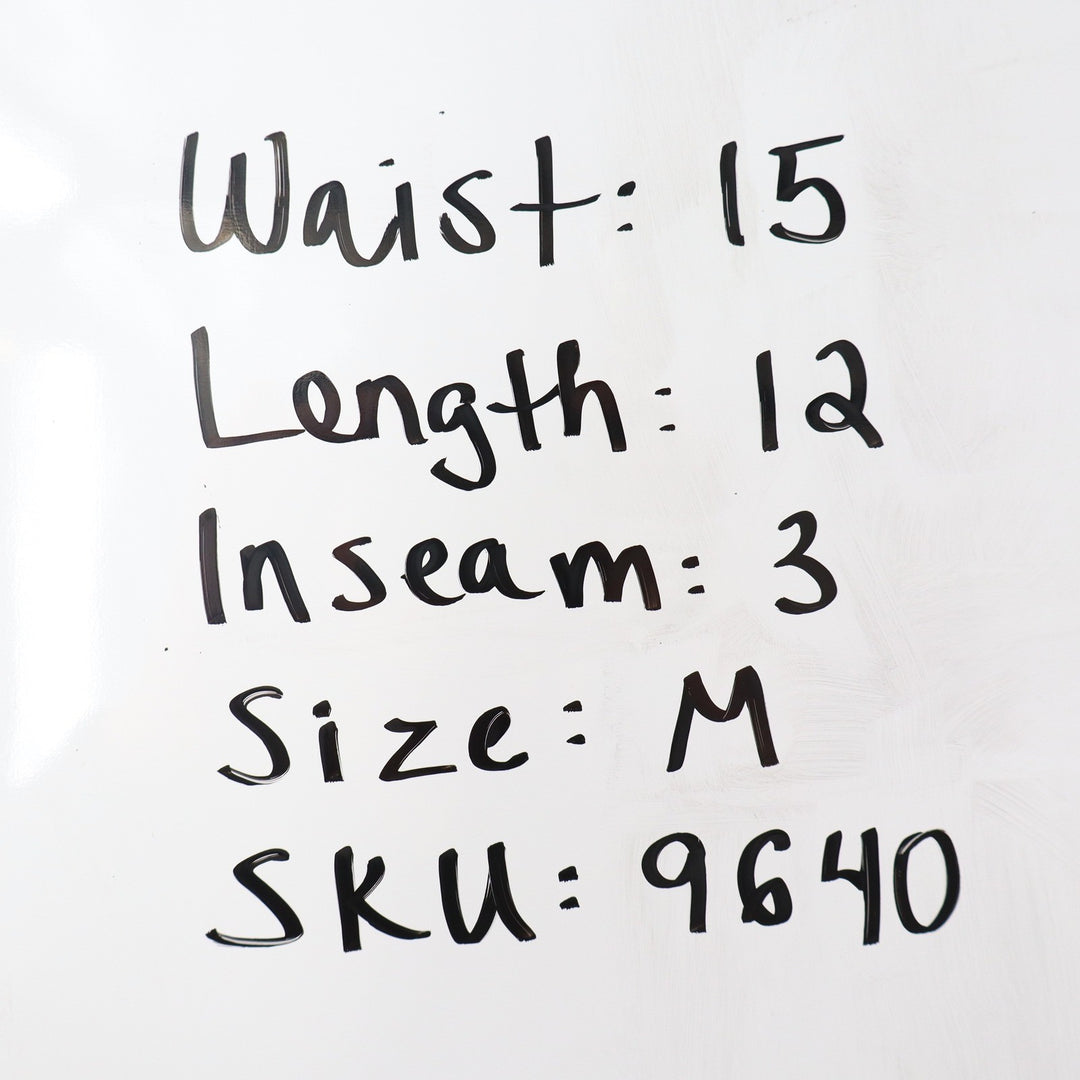 Waist: 15
Length: 12
Inseam: 3
Size: M
SKU: 9640